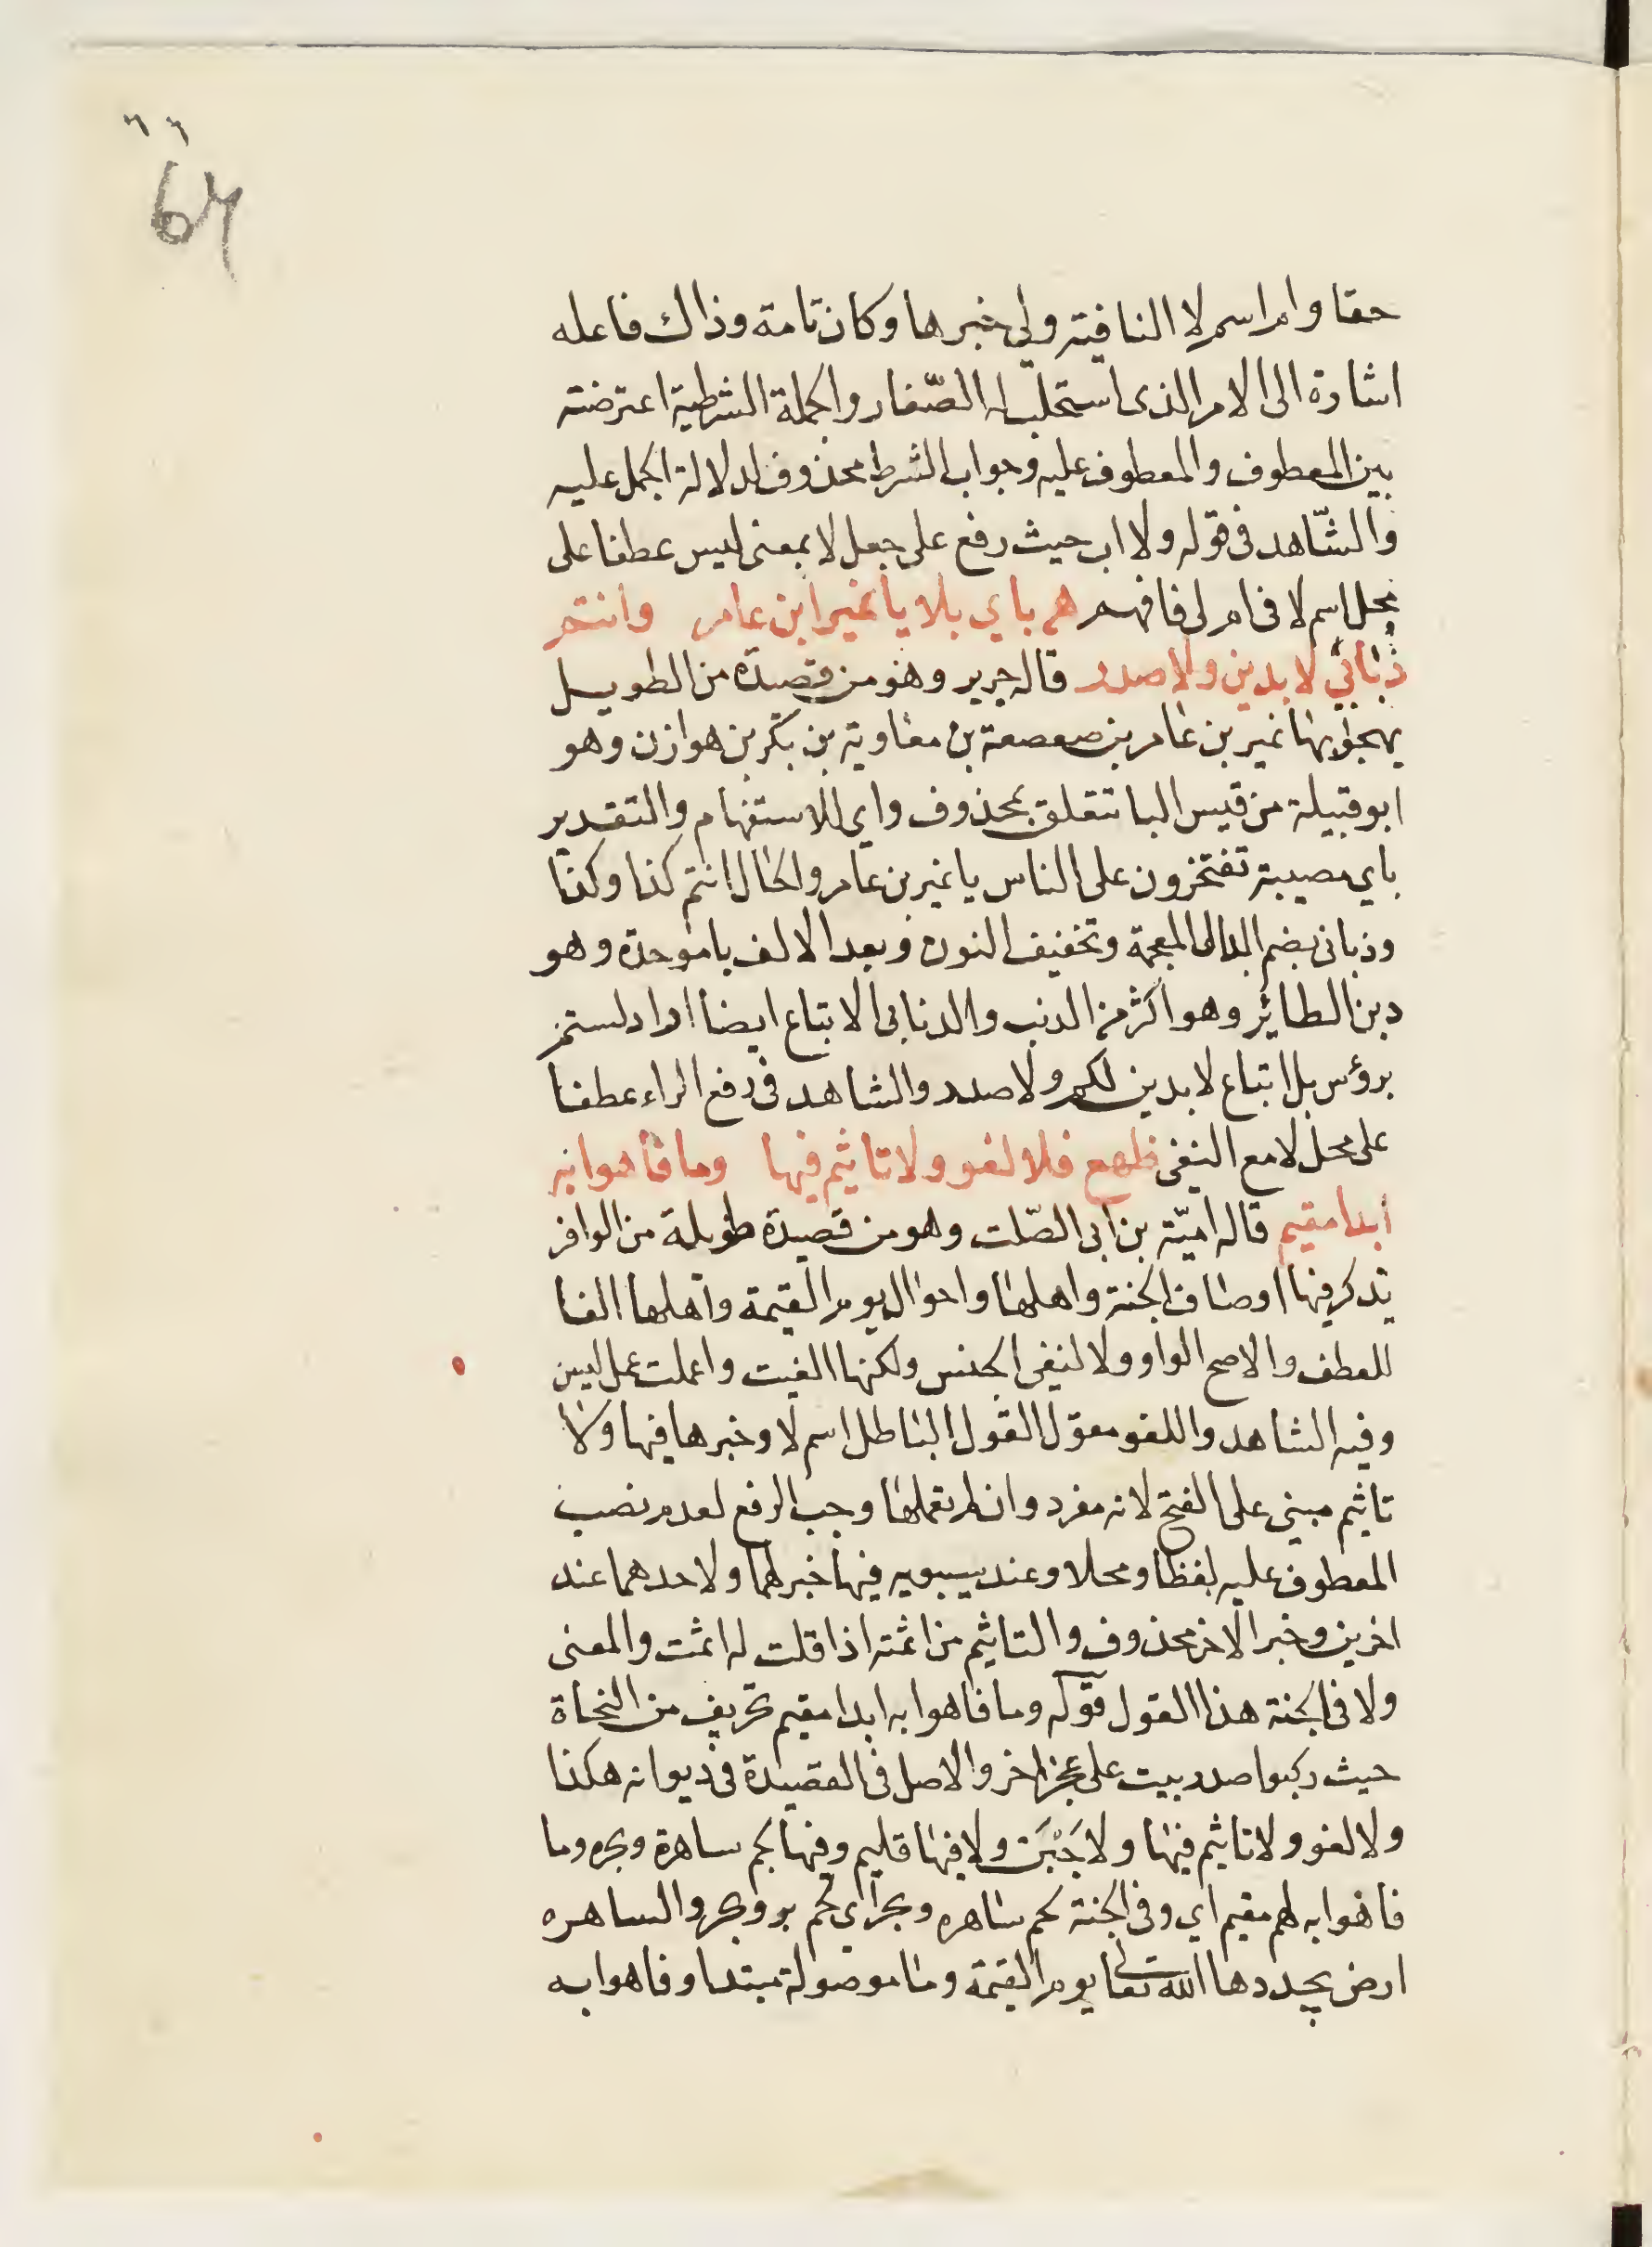 ٦٦
64
حقا وام اسم لا النافية ولي خبرها وكان تامة وذاك فاعله
اشارة الى الامر الذى استحلب له الصّغار والجملة الشرطية اعترضت
بين المعطوف والمعطوف عليه وجواب الشرط محذوف لدلالة الجمل عليه
والشّاهد فى قوله ولا اب حيث رفع على جعل لا بمعنى ليس عطفا على
محل اسم لا فى ام لى فافهم هم باي بلا يا نمير ابن عامر وانتم
ذُنابي لا يدين ولا صدر قاله جرير وهو من قصيدة من الطويل
يهجوا بها نمير بن عامر بن صعصعة بن معاوية بن بكر بن هوازن وهو
ابو قبيلة من قيس البا تتعلق بمحذوف واي للاستفهام والتقدير
باي مصيبة تفتخرون على الناس يا نمير بن عامر والحال انتم كذا وكذا
وذبانى بضم الذال المعجمة وتخفيف النون وبعد الالف با موحدة وهو
دبن الطائر وهو اكثر من الدنب والدنابى الاتباع ايضا اراد لستم
برؤس بل اتباع لا بدين لكم ولا صدر والشاهد فى رفع الراء عطفا
على محل لا مع النفى ظهع فلا لغو ولا تاثيم فيها وما فاهوا به
ابدا مقيم قاله اميّة بن ابى الصّلت وهو من قصيدة طويلة من الوافر
يذكر فيها اوصاف الجنة واهلها واحوال يوم القيمة واهلها الفا
للعطف والاصح الواو ولا لنفى الجنس ولكنها الغيت واعملت عمل ليس
وفيه الشاهد واللغو معوّل القول الباطل اسم لا وخبرها فيها ولا
تاثيم مبنى على الفتح لانه مفرد وان لم تعملها وجب الرفع لعدم نصب
المعطوف عليه لفظا ومحلا وعند سيبويه فيها خبر لهما ولاحدهما عند
اخرين وخبر الاخر محذوف والتاثيم من اثمته اذا قلت له اثمت والمعنى
ولا فى الجنة هذا القول قوله وما فاهوا به ابدا مقيم تحريف من النحاة
حيث ركبوا صدر بيت على عجز اخر والاصل فى القصيدة فى ديوانه هكذا
ولا لغو ولا تاثيم فيها ولا حَيْنَ ولا فيها قليم وفيها لحم ساهرة وبحر وما
فاهوا به لهم مقيم اي وفى الجنة لحم ساهره وبحر اي لحم بر وبحر والساهره
ارض يجددها الله تعالى يوم القيمة وما موصولة مبتدا وفاهوا به